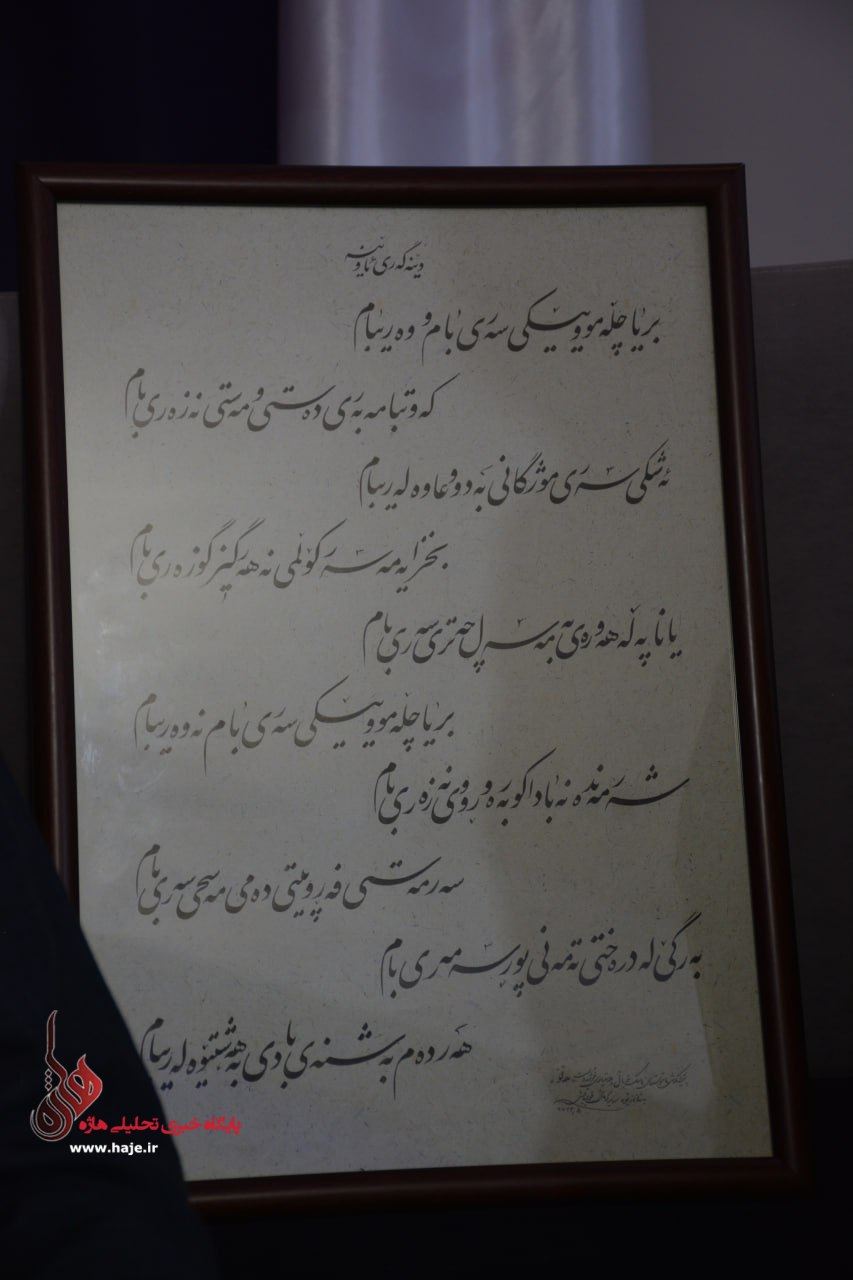 وێنەگەری ئاوێنە
بریا چڵە موویێکی سەری بام و وەریبام
کەوتبامە بەری دەستی و مەستی نەزەری بام
ئەشکی سەری موژگانی بە دوو عاوە لەریبام
بخزایەمە سەر کوڵمی نە هەرگیز گوزەری بام
یانا پەڵە هەورەی بمە سەر پەل چەتری سەری بام
بریا چڵە موویێکی سەری بام نەوەریبام
شەرمەندە نەبادا کو بەرەو ڕووی نەزەری بام
سەرمەستی فەڕویتی دەمی مەسحی سەری بام
بەرگێ لە درەختی تەمەنی پوڕ سەمەری بام
هەردەم بە شنەی بادی بەهەشتێوە لەریبام
هاژه
پایگاه خبری تحلیلی هاژه
www.haje.ir